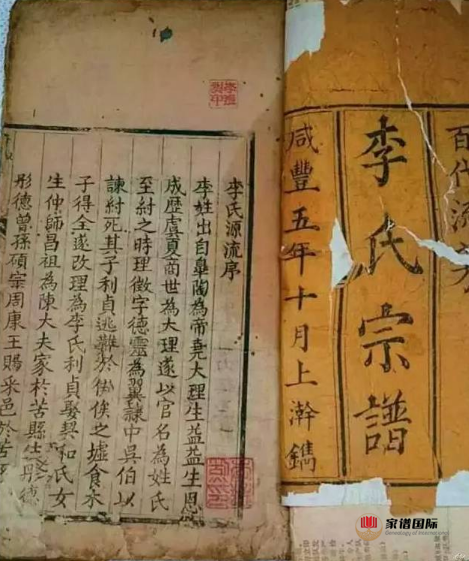 百代流
李氏宗譜
咸豐五年十月上澣鐫
李氏源流序
李姓出自皐陶為帝堯大理生益益生恩
成歷虞夏商世為大理遂以官名為姓氏
至紂之時理徵字德靈為翼隸中吳伯以
諫紂死其子利貞逃難於侯之墟食木
子得全遂改理為李氏利貞娶契和氏女
生仲師昌祖為陳大夫家於苦縣生彤德
彤德曾孫碩宗周康王賜采邑於苦
家谱国际